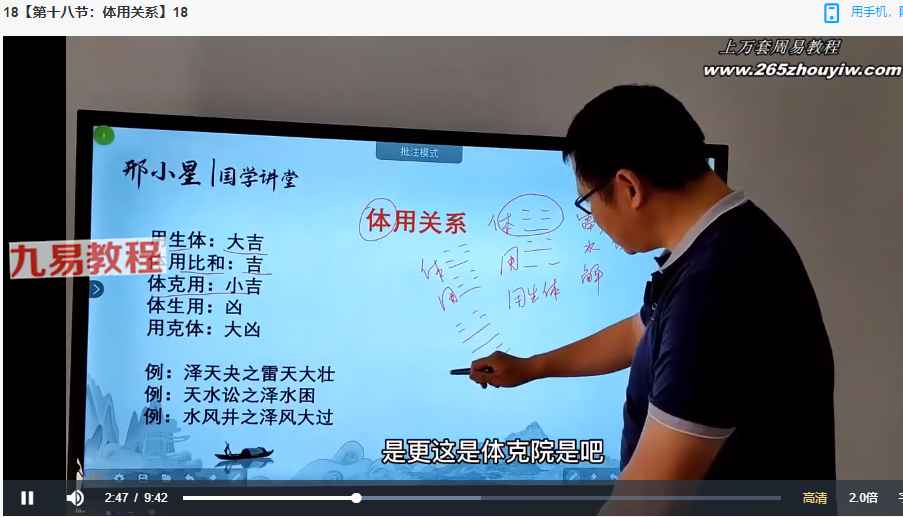 18【第十八节：体用关系】18
用手机，
上万套周易教程
www.265zhouyiw.com
批注模式
邢小星|国学讲堂
体用关系
体
用
体
用
用生体
解
用生体：大吉
九易教程
体用比和：吉
体克用：小吉
体生用：凶
用克体：大凶
例：泽天夬之雷天大壮
例：天水讼之泽水困
例：水风井之泽风大过
是更这是体克院是吧
2:47 / 9:42
高清
2.0倍